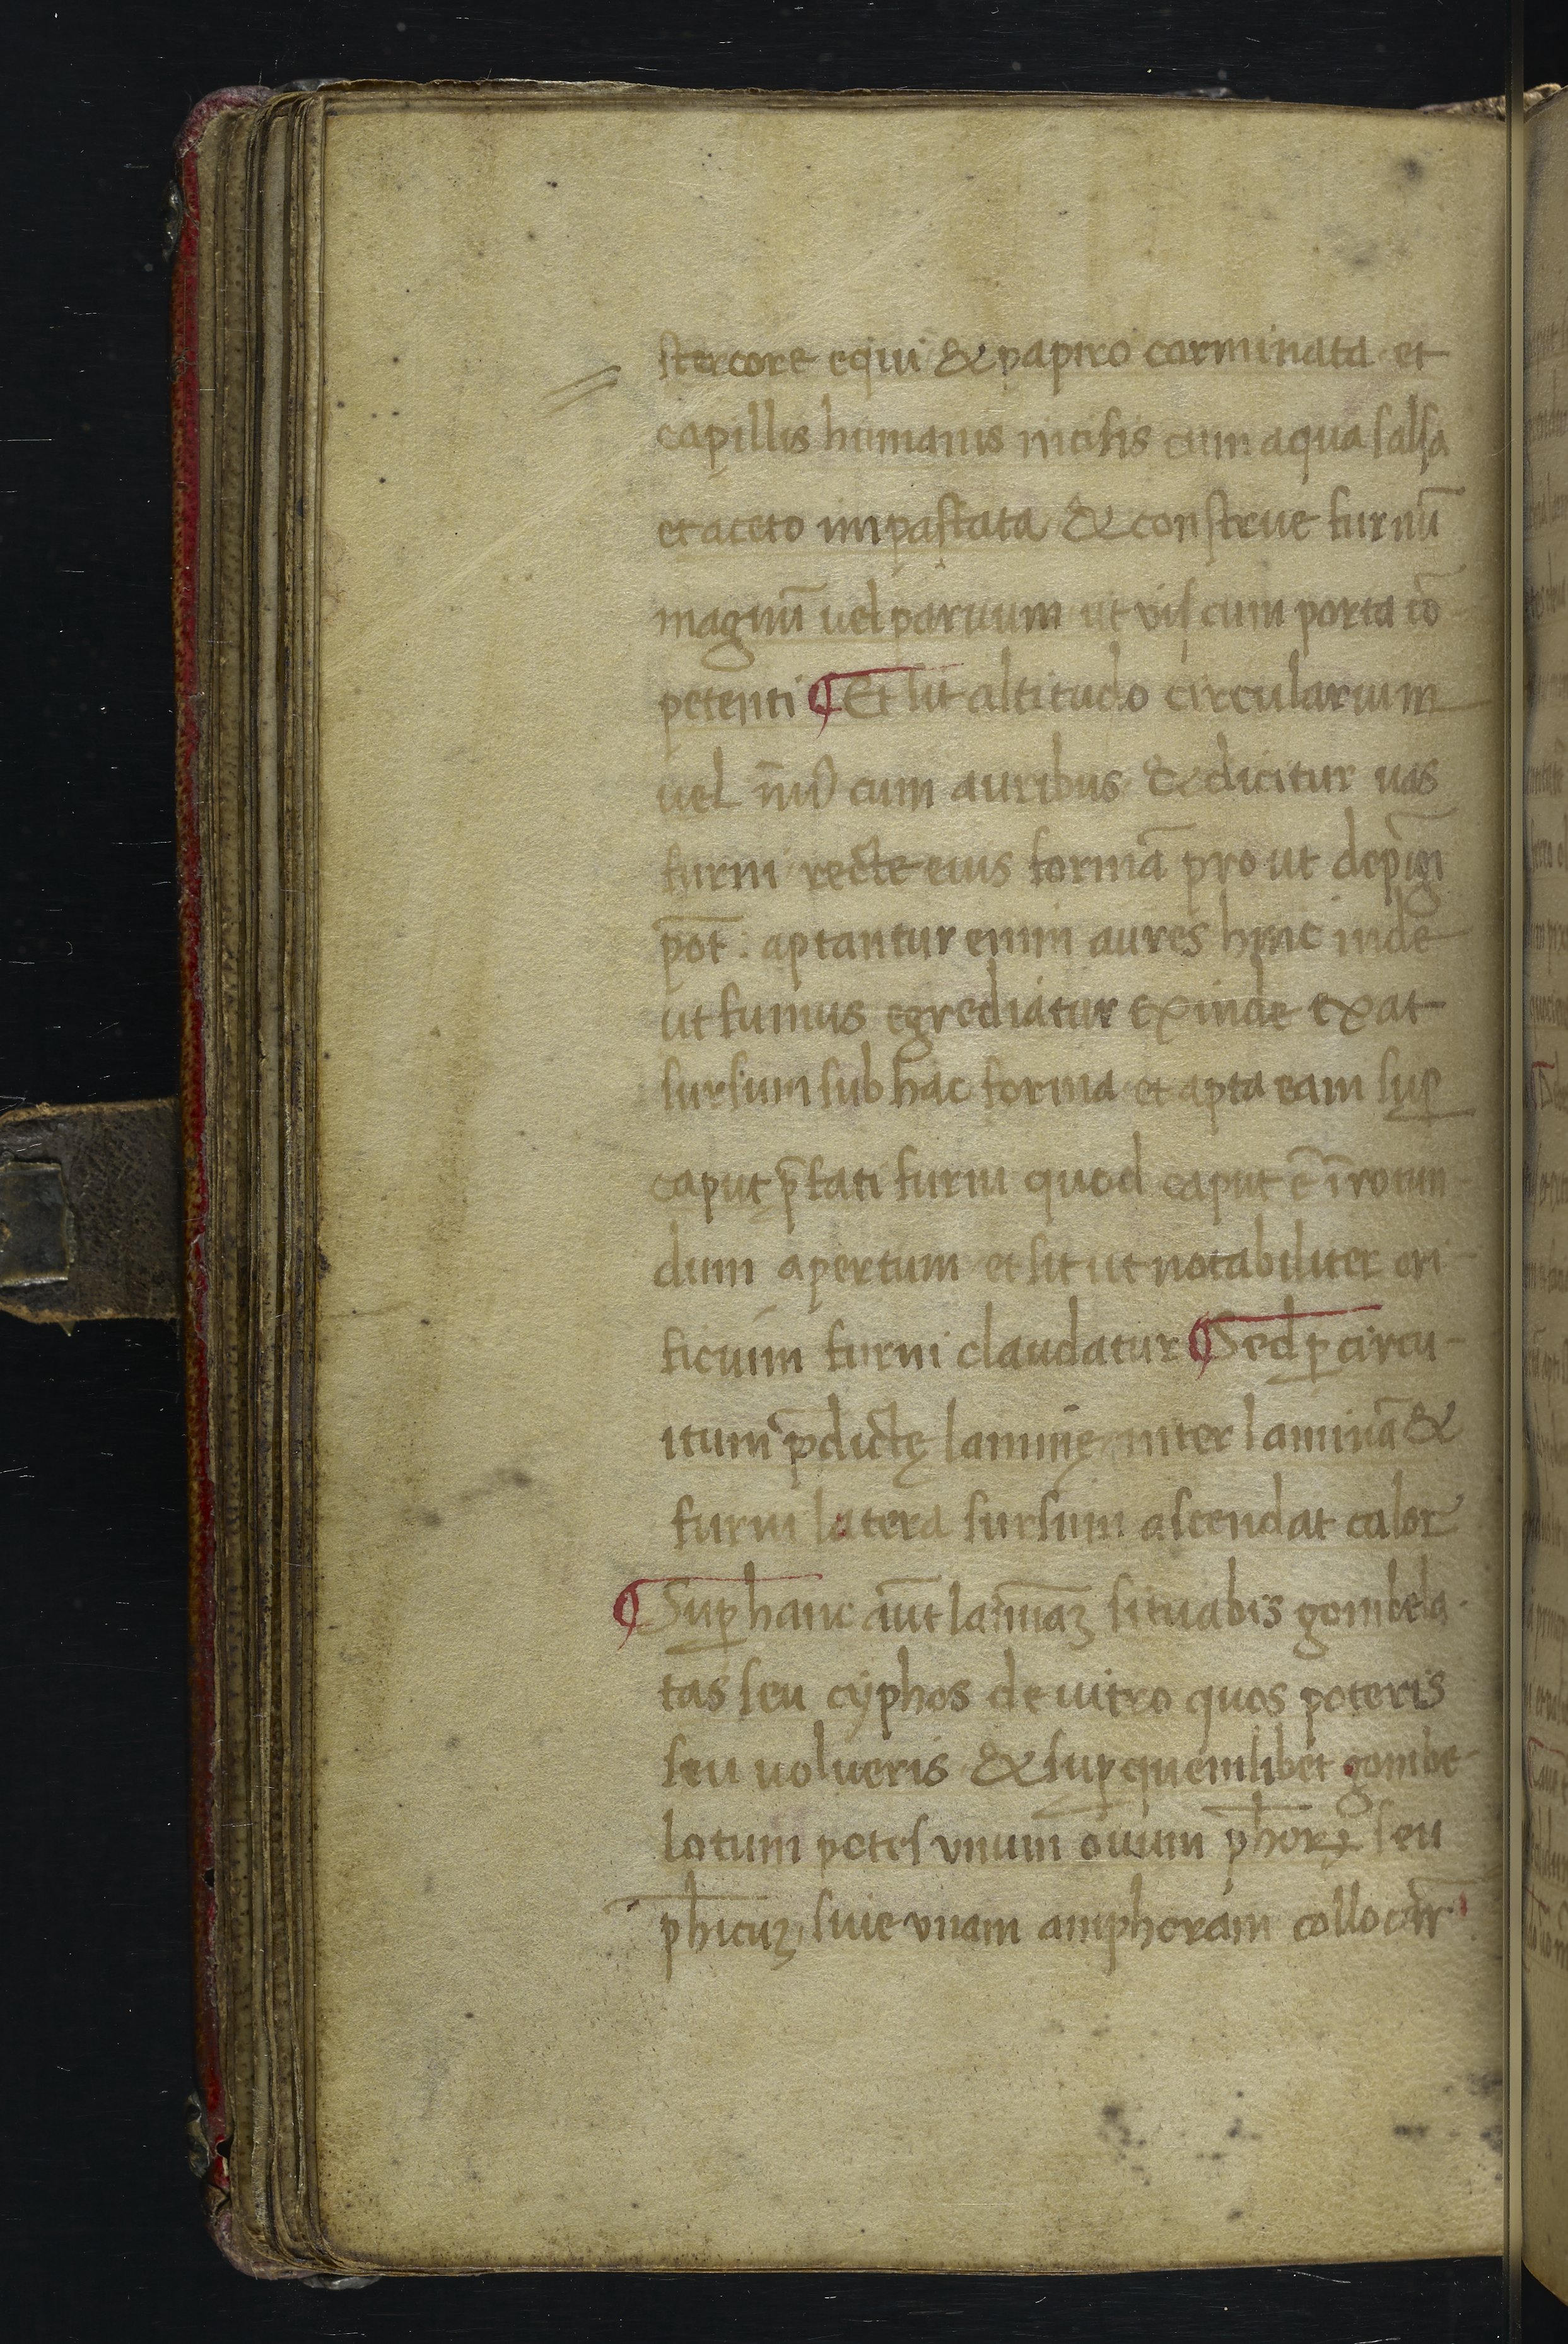 stercore equi & papiro carminata et
capillis humanis incisis cum aqua salsa
et aceto impastata & construe furnū
magnū vel parvum ut vis cum porta cō
petenti ¶ Et sit altitudo circularium
vel cum auribus & dicitur vas
furni recte eius formā pro ut depīgi
pōt. aptantur enim aures hinc inde
ut fumus egrediatur exinde exat
sursum sub hac forma et apta eam suꝑ
caput p̄fati furni quod caput ē ī rotun
dum apertum et sit ut notabiliter ori-
ficium furni claudatur ¶ Sed ꝑ circu-
itum p̄dictę laminę inter laminā &
furni latera sursum ascendat calor
¶ Suꝑ hanc aūt lamīaꝫ situabis gombela-
tas seu cyphos de vitro quos poteris
seu volueris & suꝑ quemlibet gombe-
lotum potes vnum ovum ph̄oꝝ seu
ph̄icuꝫ sive vnam amphoram collocar̄